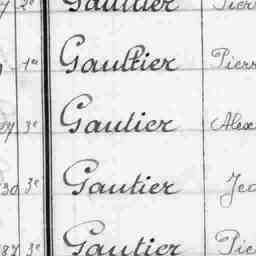 2e Gaultier Pierr
1a Gaultier Pierr
3e Gautier Alex
30 3e Gautier Jea
87 3e Gautier Pie